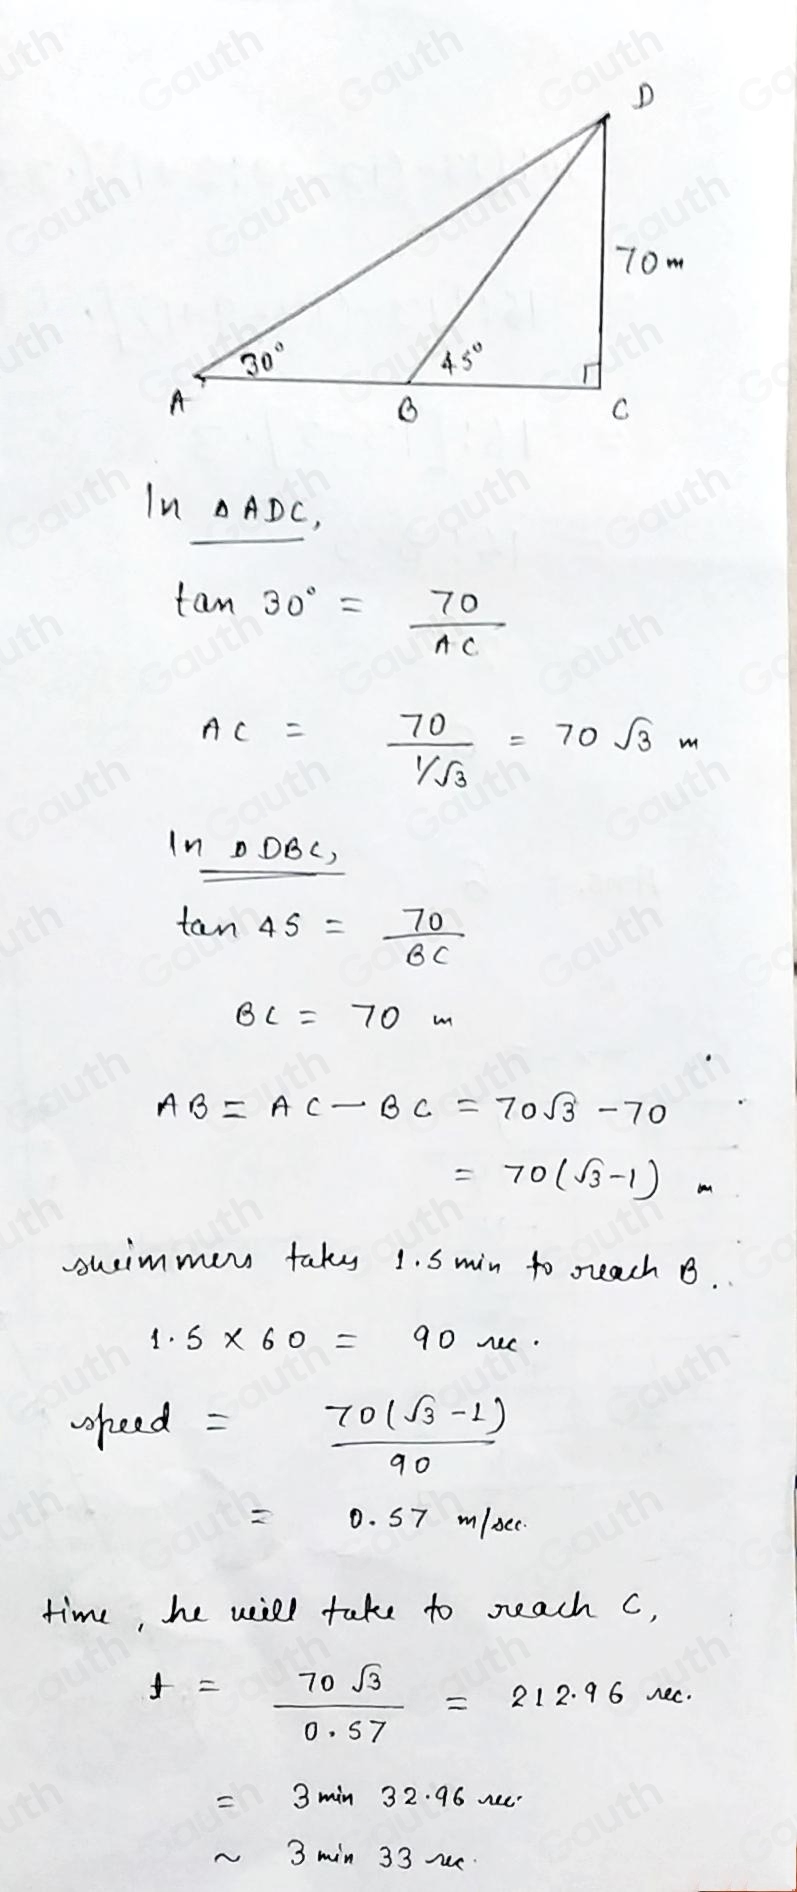 D
70 m
30°
45°
A
B
C
In △ADC,
tan 30° = 70/AC
AC = 70/(1/√3) = 70√3 m
In △DBC,
tan 45 = 70/BC
BC = 70 m
AB = AC - BC = 70√3 - 70
= 70(√3-1) m
swimmers takes 1.5 min to reach B.
1.5 × 60 = 90 sec.
speed = 70(√3-1)/90
= 0.57 m/sec.
time, he will take to reach C,
t = 70√3/0.57 = 212.96 sec.
= 3 min 32.96 sec.
~ 3 min 33 sec.
Gauth